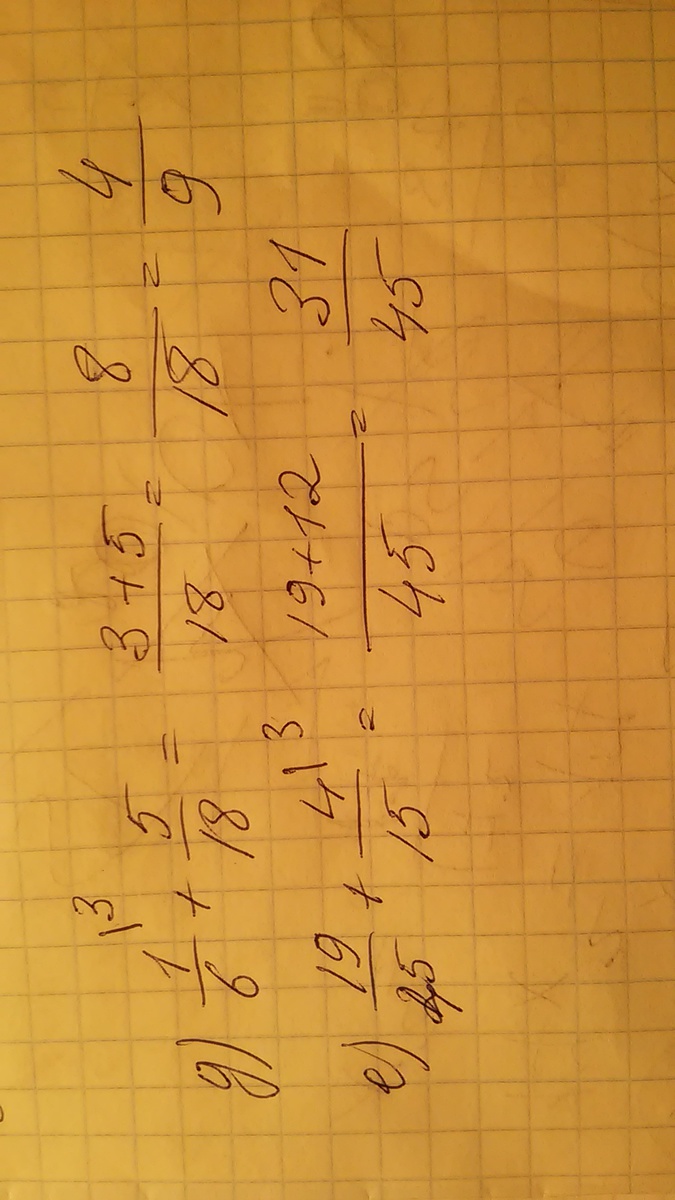 д) 1\3/6 + 5/18 = (3+5)/18 = 8/18 = 4/9
е) 19/45 + 4\3/15 = (19+12)/45 = 31/45